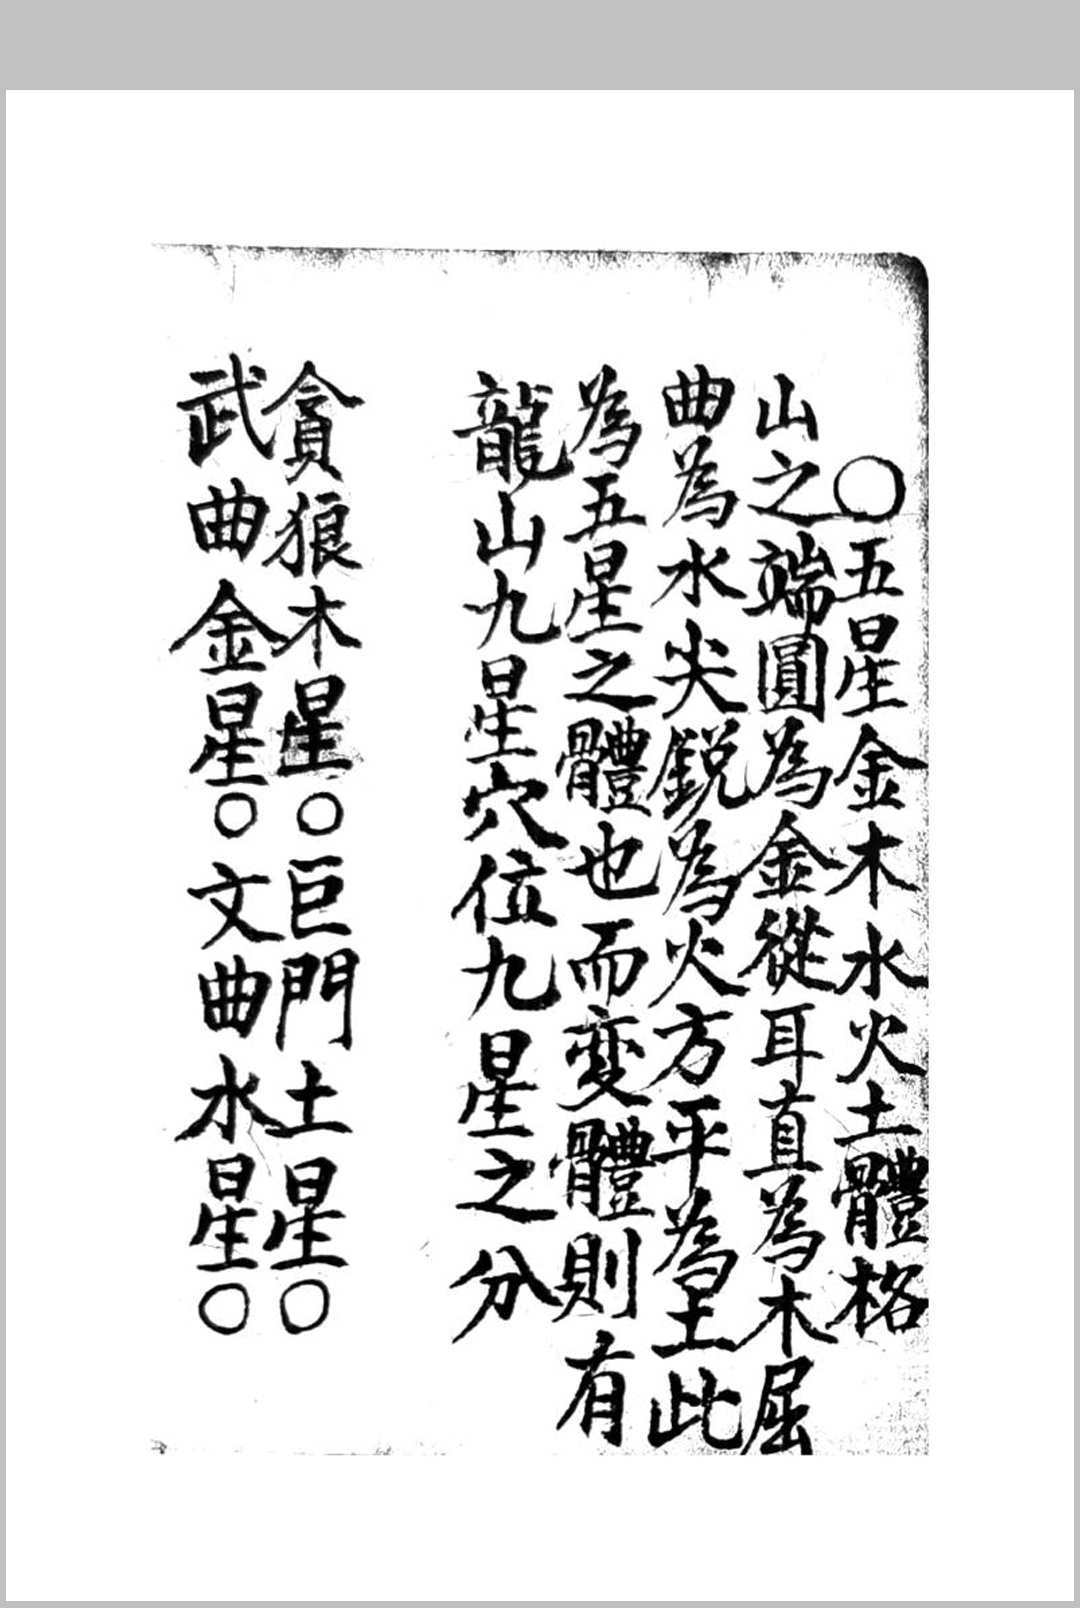 〇五星金木水火土體格
山之端圓為金從耳直為木屈
曲為水尖鋭為火方平為土此
為五星之體也而変體則有
龍山九星穴位九星之分
貪狼木星〇巨門土星〇
武曲金星〇文曲水星〇